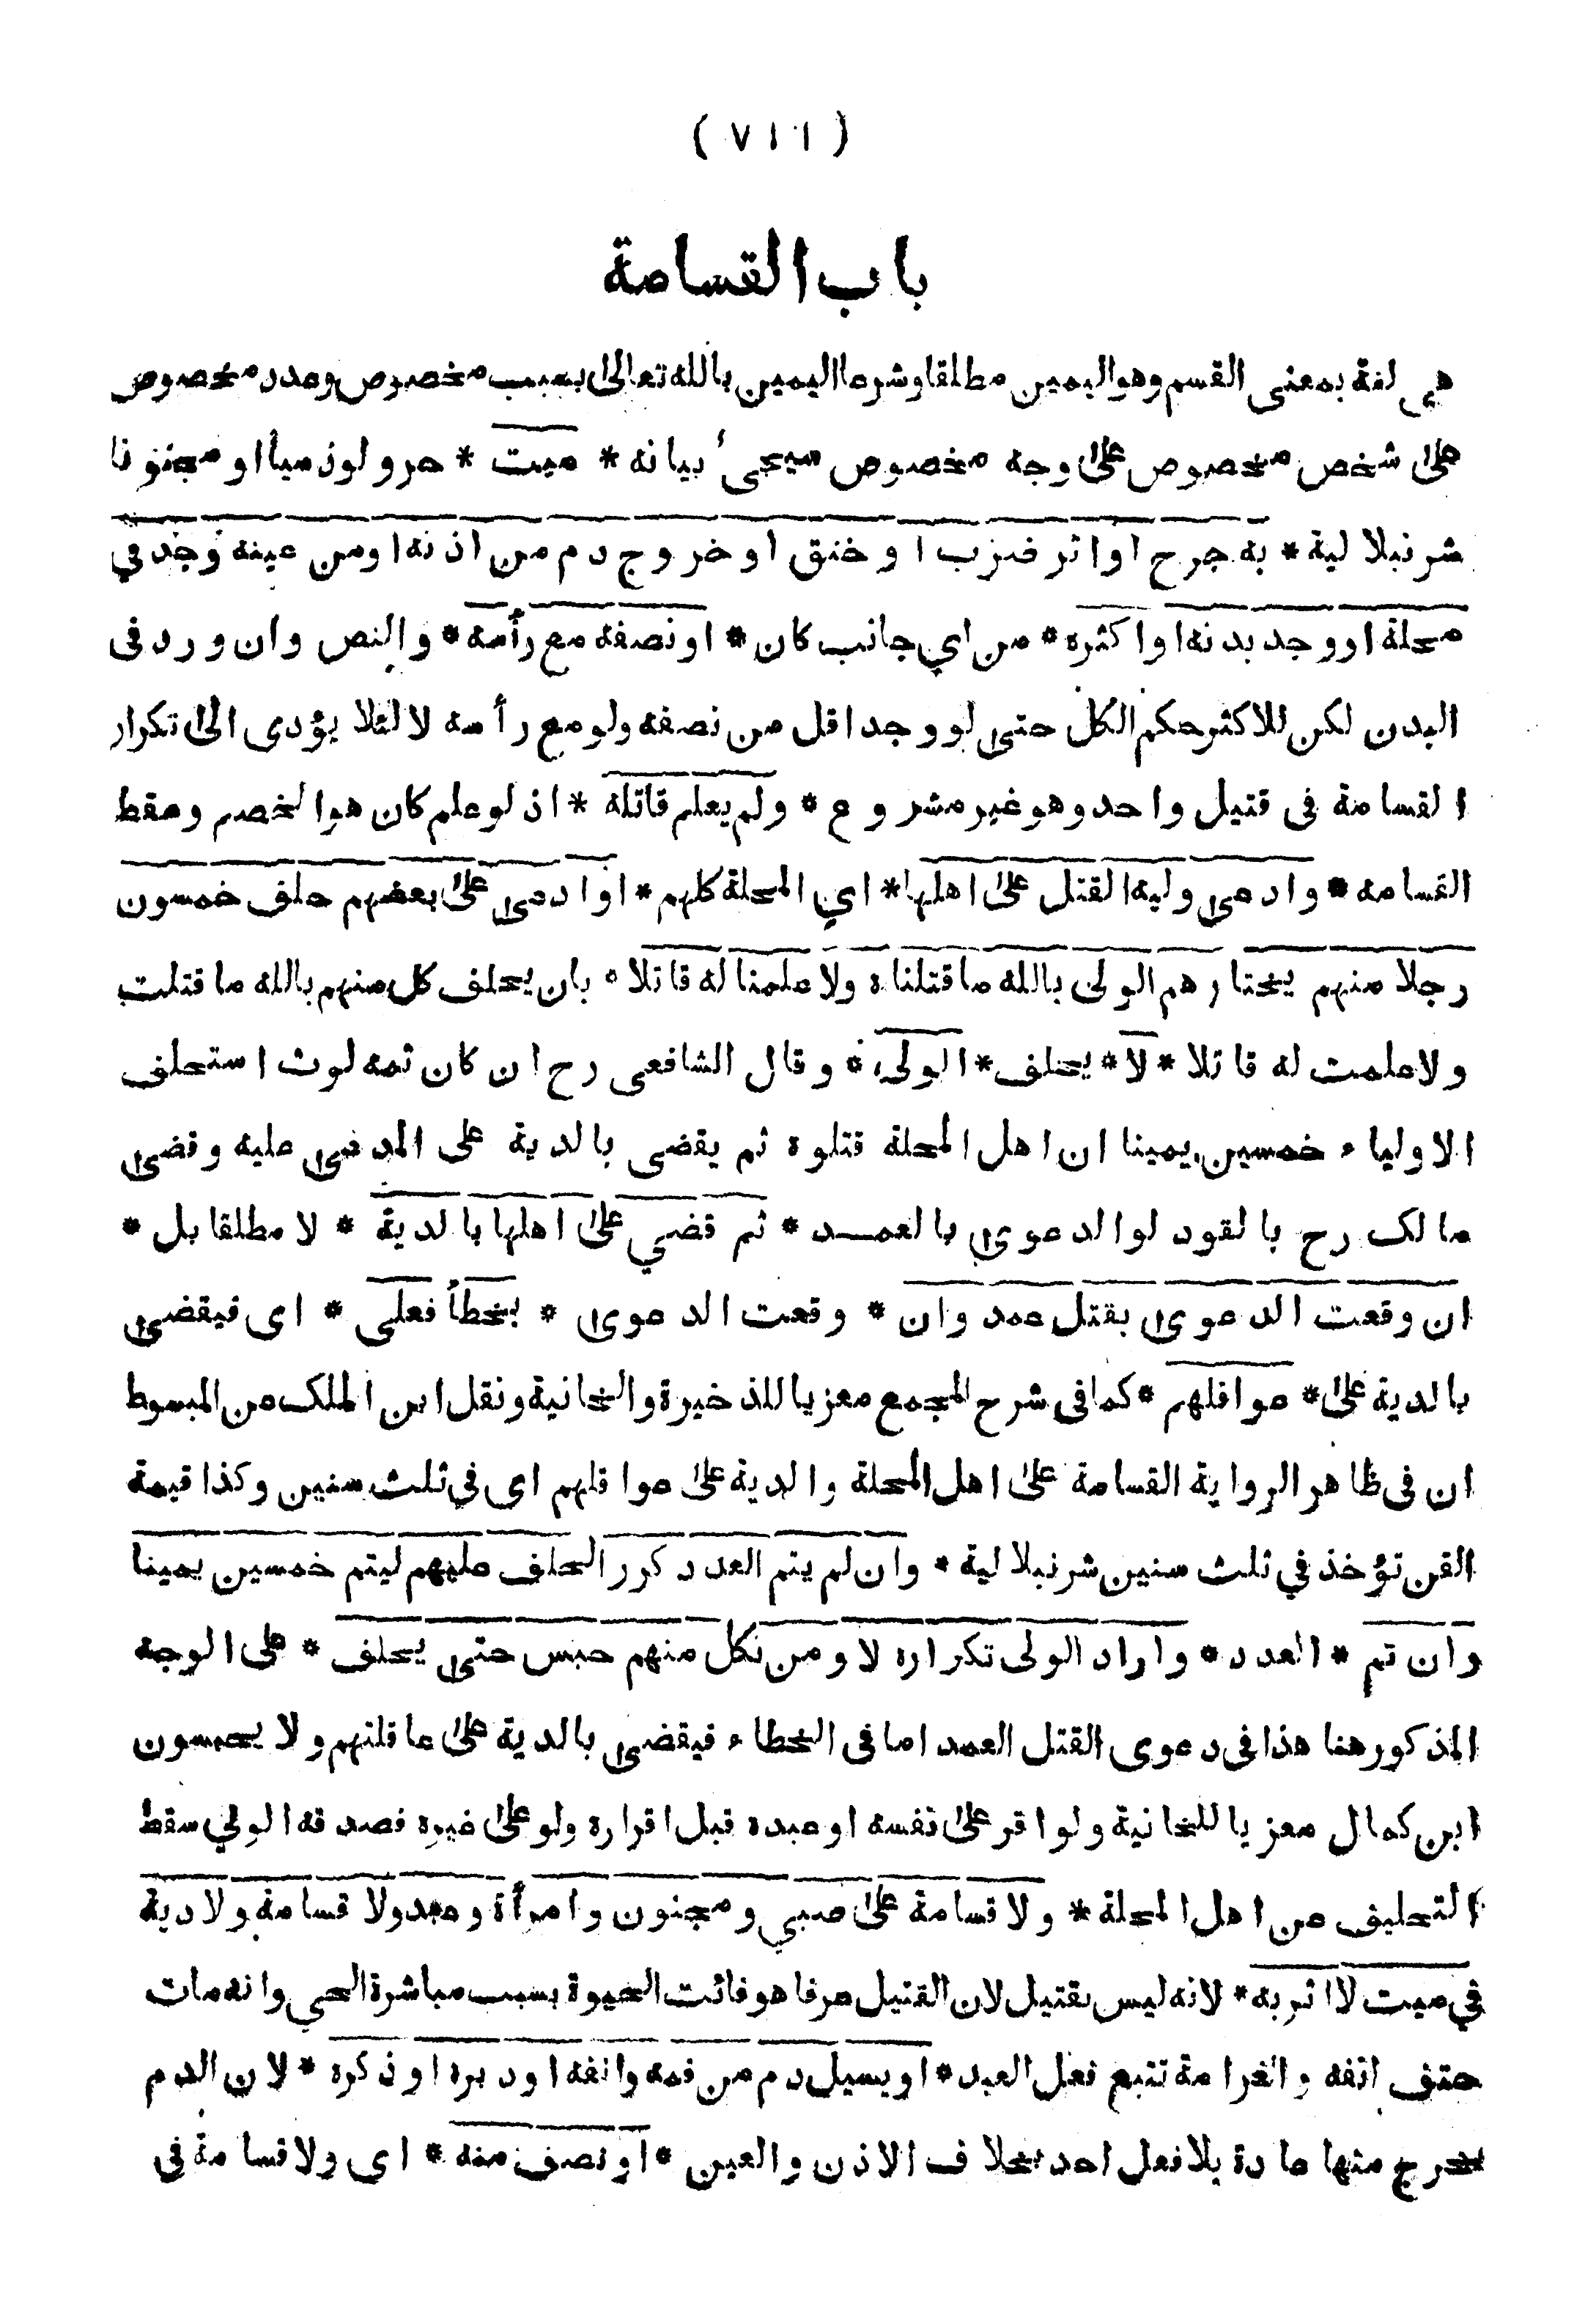 ( ٧١١ )
باب القسامة
هي لغة بمعنى القسم وهو اليمين مطلقا وشرعا اليمين بالله تعالى بسبب مخصوص وعدد مخصوص
على شخص مخصوص على وجه مخصوص سيجىء بيانه * ميت * حر ولو ذميا او مجنونا
شرنبلالية * به جرح او اثر ضرب او خنق او خروج دم من اذنه او من عينه وجد في
محلة او وجد بدنه او اكثره * من اي جانب كان * او نصفه مع رأسه * والنص وان ورد فى
البدن لكن للاكثر حكم الكل حتى لو وجد اقل من نصفه ولو مع رأسه لا لئلا يؤدى الى تكرار
القسامة فى قتيل واحد وهو غير مشروع * ولم يعلم قاتله * اذ لو علم كان هو الخصم وسقط
القسامه * وادعى وليه القتل على اهلها * اي المحلة كلهم * او ادعى على بعضهم حلف خمسون
رجلا منهم يختارهم الولى بالله ما قتلناه ولا علمنا له قاتلا * بان يحلف كل منهم بالله ما قتلت
ولا علمت له قاتلا * لا * يحلف * الولى * وقال الشافعى رح ان كان ثمه لوث استحلف
الاولياء خمسين يمينا ان اهل المحلة قتلوه ثم يقضى بالدية على المدعى عليه وقضى
مالك رح بالقود لو الدعوى بالعمد * ثم قضي على اهلها بالدية * لا مطلقا بل *
ان وقعت الدعوى بقتل عمد وان * وقعت الدعوى * بخطأ فعلى * اى فيقضى
بالدية على * عواقلهم * كما فى شرح المجمع معزيا للذخيرة والخانية ونقل ابن الملك عن المبسوط
ان فى ظاهر الرواية القسامة على اهل المحلة والدية على عواقلهم اى في ثلث سنين وكذا قيمة
القن تؤخذ في ثلث سنين شرنبلالية * وان لم يتم العدد كرر الحلف عليهم ليتم خمسين يمينا
وان تم * العدد * واراد الولى تكراره لا ومن نكل منهم حبس حتى يحلف * على الوجه
المذكور هنا هذا فى دعوى القتل العمد اما فى الخطاء فيقضى بالدية على عاقلتهم ولا يحبسون
ابن كمال معزيا للخانية ولو اقر على نفسه او عبده قبل اقراره ولو على غيره فصدقه الولي سقط
التحليف عن اهل المحلة * ولا قسامة على صبي ومجنون وامرأة وعبد ولا قسامة ولا دية
في ميت لا اثر به * لانه ليس بقتيل لان القتيل عرفا هو فائت الحيوة بسبب مباشرة الحي وانه مات
حتف انفه والغرامة تتبع فعل العبد * او يسيل دم من فمه وانفه او دبره او ذكره * لان الدم
يخرج منها عادة بلا فعل احد بخلاف الاذن والعين * او نصف منه * اى ولا قسامة فى